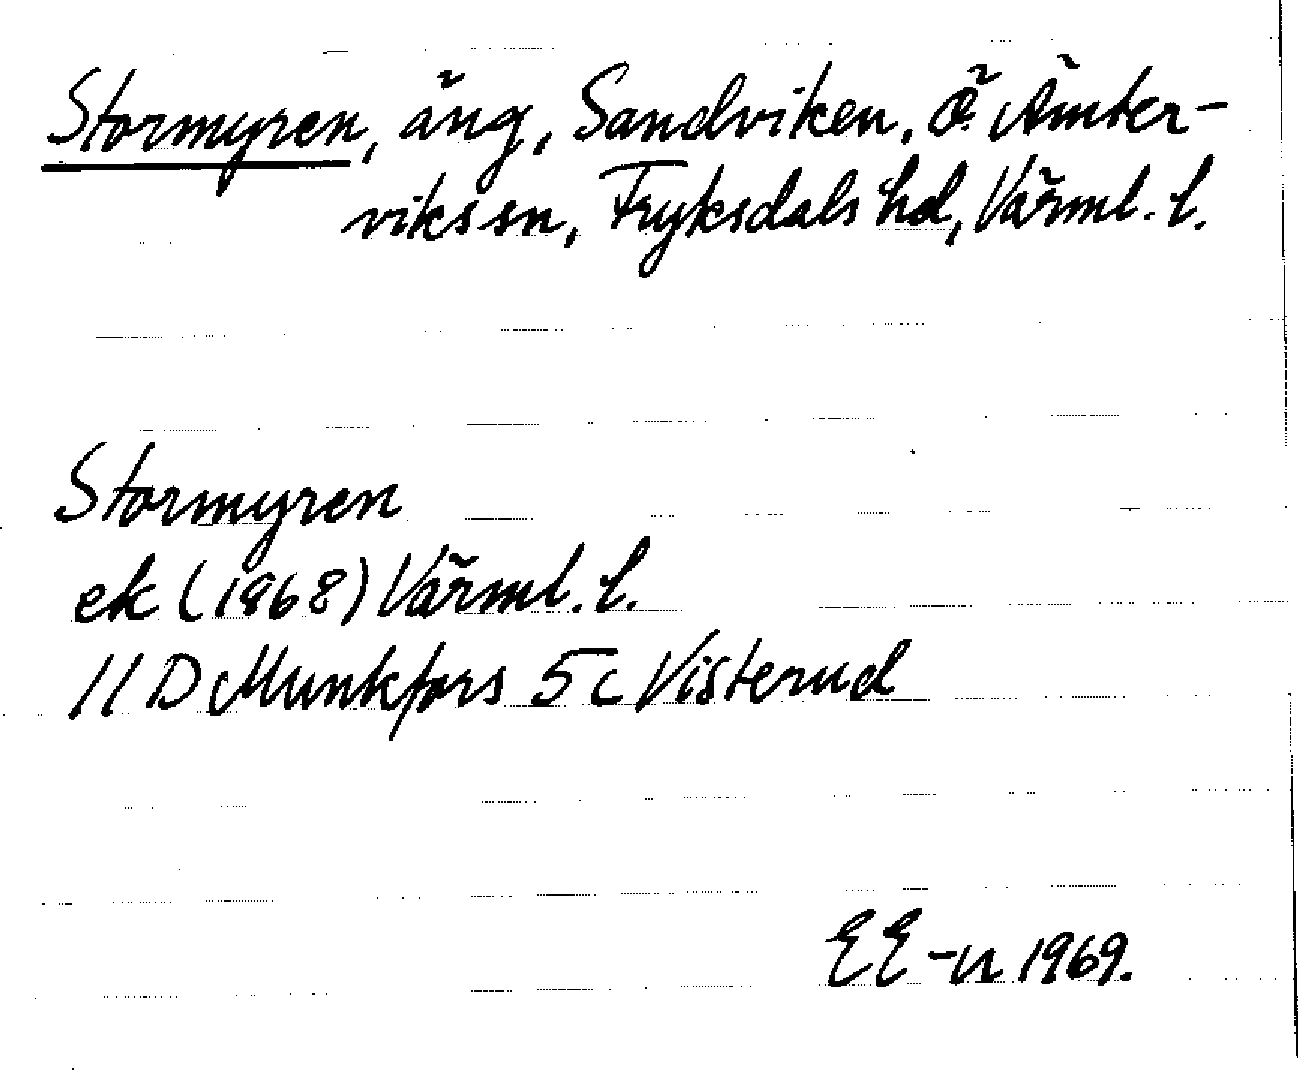 Stormyren, äng, Sandviken, Ö. Ämter-
viks sn, Fryksdals hd, Värml. l.
Stormyren
ek (1968) Värml. l.
11 D Munkfors 5 c Visterud
EE-n 1969.